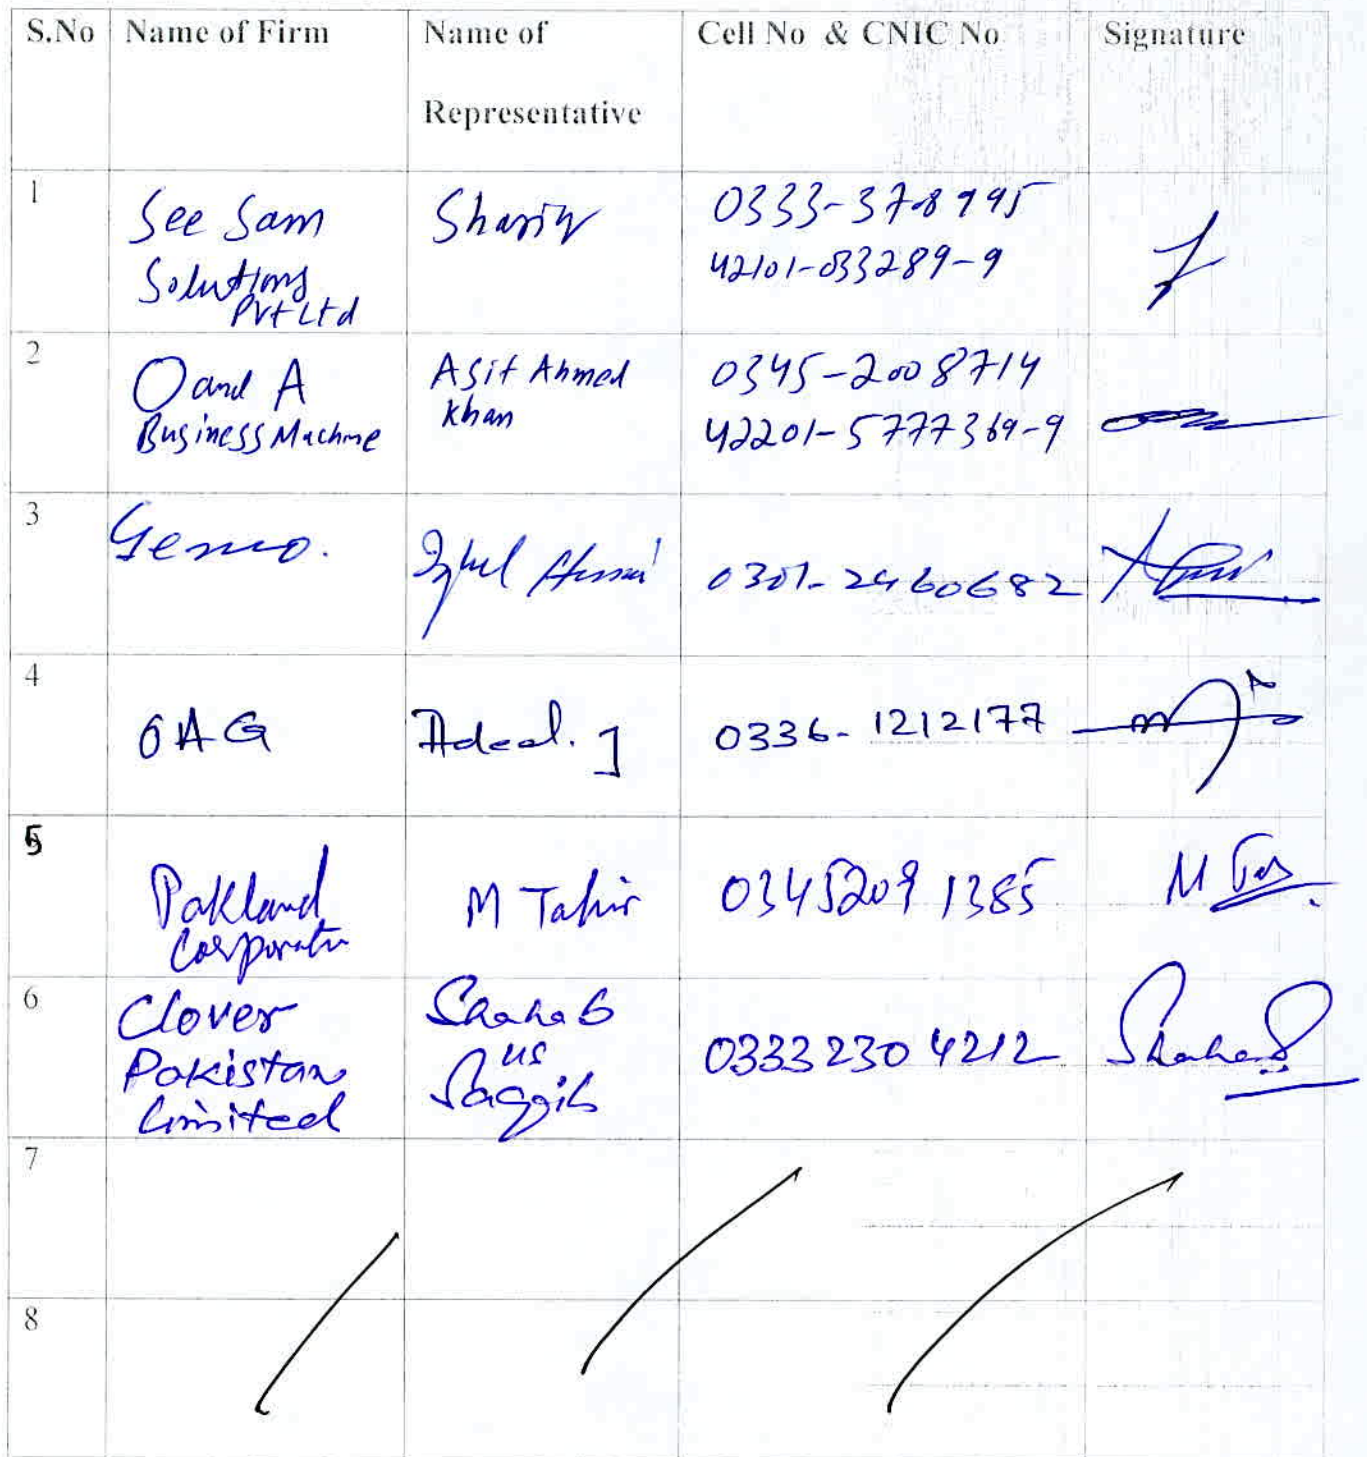 S.No Name of Firm Name of Representative Cell No & CNIC No Signature
1 See Sam Solutions Pvt Ltd Shariq 0333-3708995
42101-033289-9
2 O and A Business Machine Asif Ahmed Khan 0345-2008714
42201-5777369-9
3 Gemco. 0301-2460682
4 OAG Adeel. J 0336-1212177
5 Pakland Corporatn M Tahir 03452091385
6 Clover Pakistan Limited Shahab us Saqqib 03332304212 Shahab
7
8